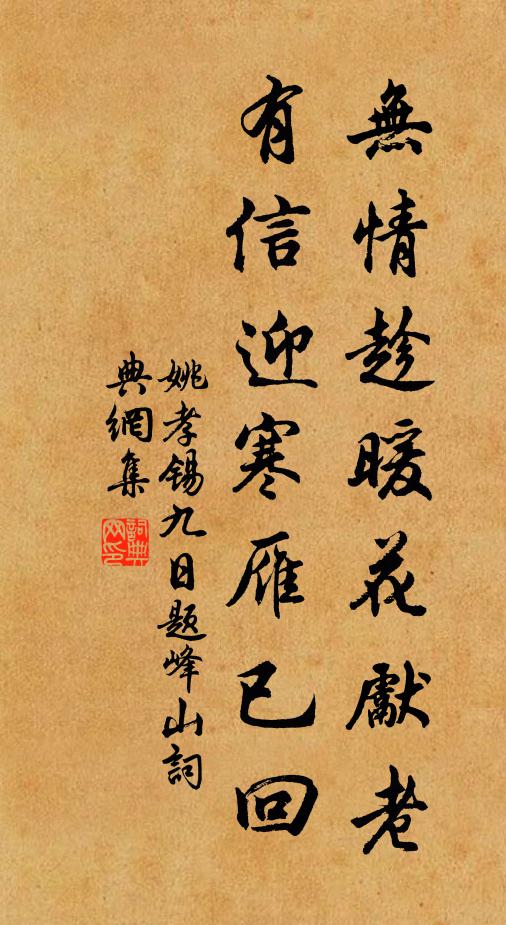 無情趁暖花獻老
有信迎寒雁已回
姚孝锡九日题峰山詞
典網集
詞典網印